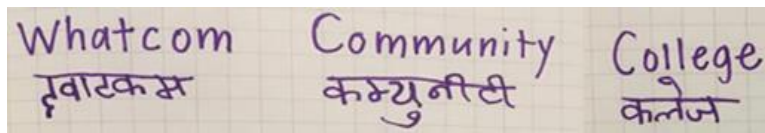 Whatcom Community College
ह्वाटकम कम्युनीटी कलेज